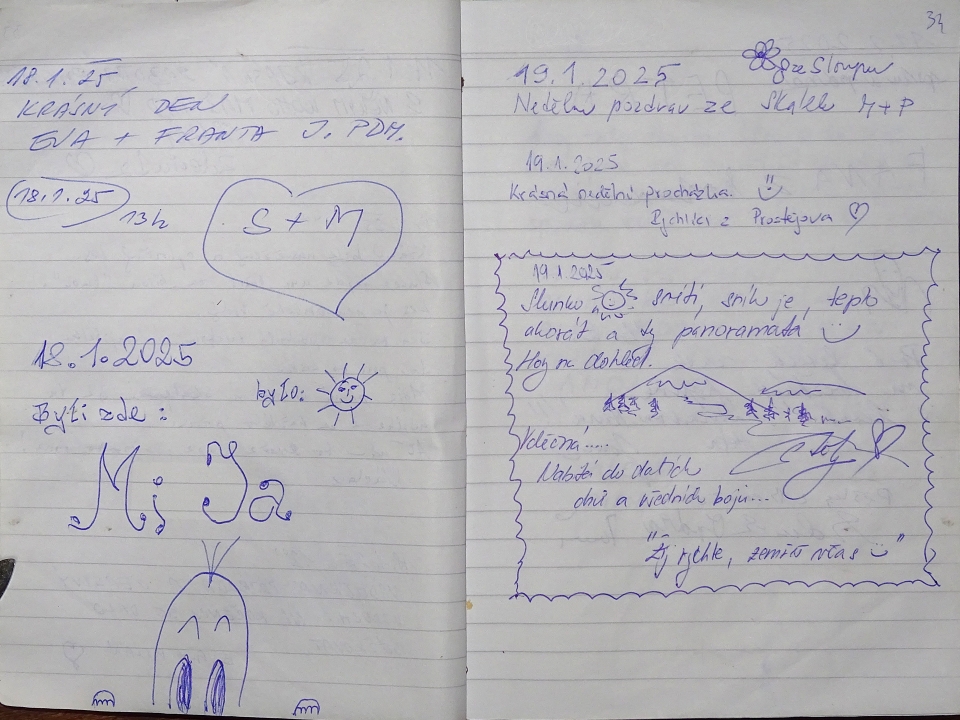 18.1.25
KRÁSNÝ DEN
EVA + FRANTA J. PDM.
18.1.25
13h
S + M
18.1.2025
Byli zde:
bylo:
Mi Ja
34
19.1.2025
ze Sloupu
Nedělní pozdrav ze Skalek M+P
19.1.2025
Krásná nedělní procházka.
Rychlíci z Prostějova
19.1.2025
Slunko svítí, sníh je, teplo
akorát a ty panoramata
Hory na dohled.
Vděčná.....
Nabitá do dalších
dnů a všedních bojů...
"Žij rychle, zemři včas"